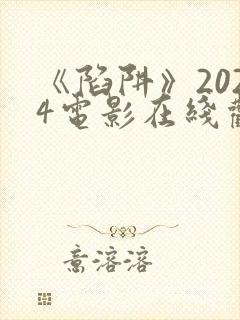 《陷阱》202
4電影在綫
溶溶